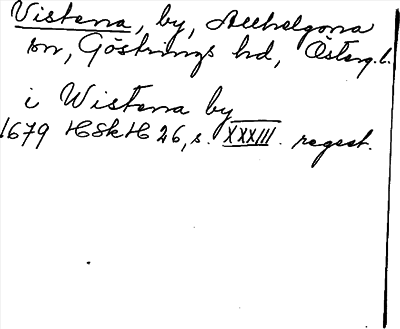 Vistena, by, Allhelgona
sn, Göstrings hd, Österg. l.
i Wistena by
1679 HSkH 26, s. XXXIII. regest.